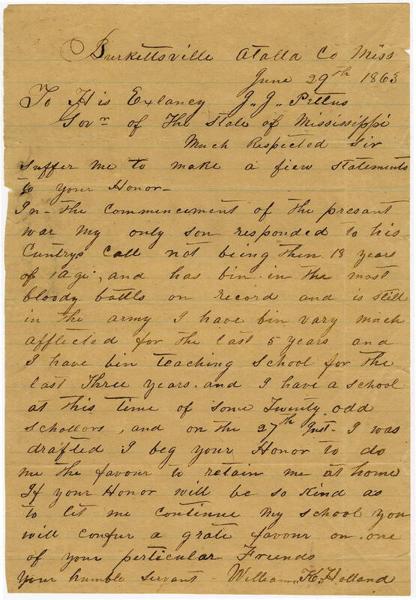 Burkettsville Atalla Co Miss
June 29th 1863
To His Exlancy J,, J,, Pettus
Govr of The State of Mississippi
Much Respected Sir
suffer me to make a fiew statements
to your Honor-
In- the commencement of the presant
war my only son responded to his
Cuntrys call not being then 18 years
of age, and has bin in the most
bloody battls on record and is still
in the army I have bin vary much
afflected for the last 5 years and
I have bin teaching school for the
last Three years. and I have a school
at this time of some Twenty odd
schollors, and on the 27th Inst- I was
drafted I beg your Honor to do
me the favour to retain me at home
If your Honor will be so kind as
to let me continue my school you
will confur a grate favour on one
of your perticular Friends
your humble servant - William H. Holland